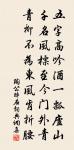 五字高吟酒一瓢廬山
千古想風標至今門外青
青柳不為東風肯折腰
陶公醉石